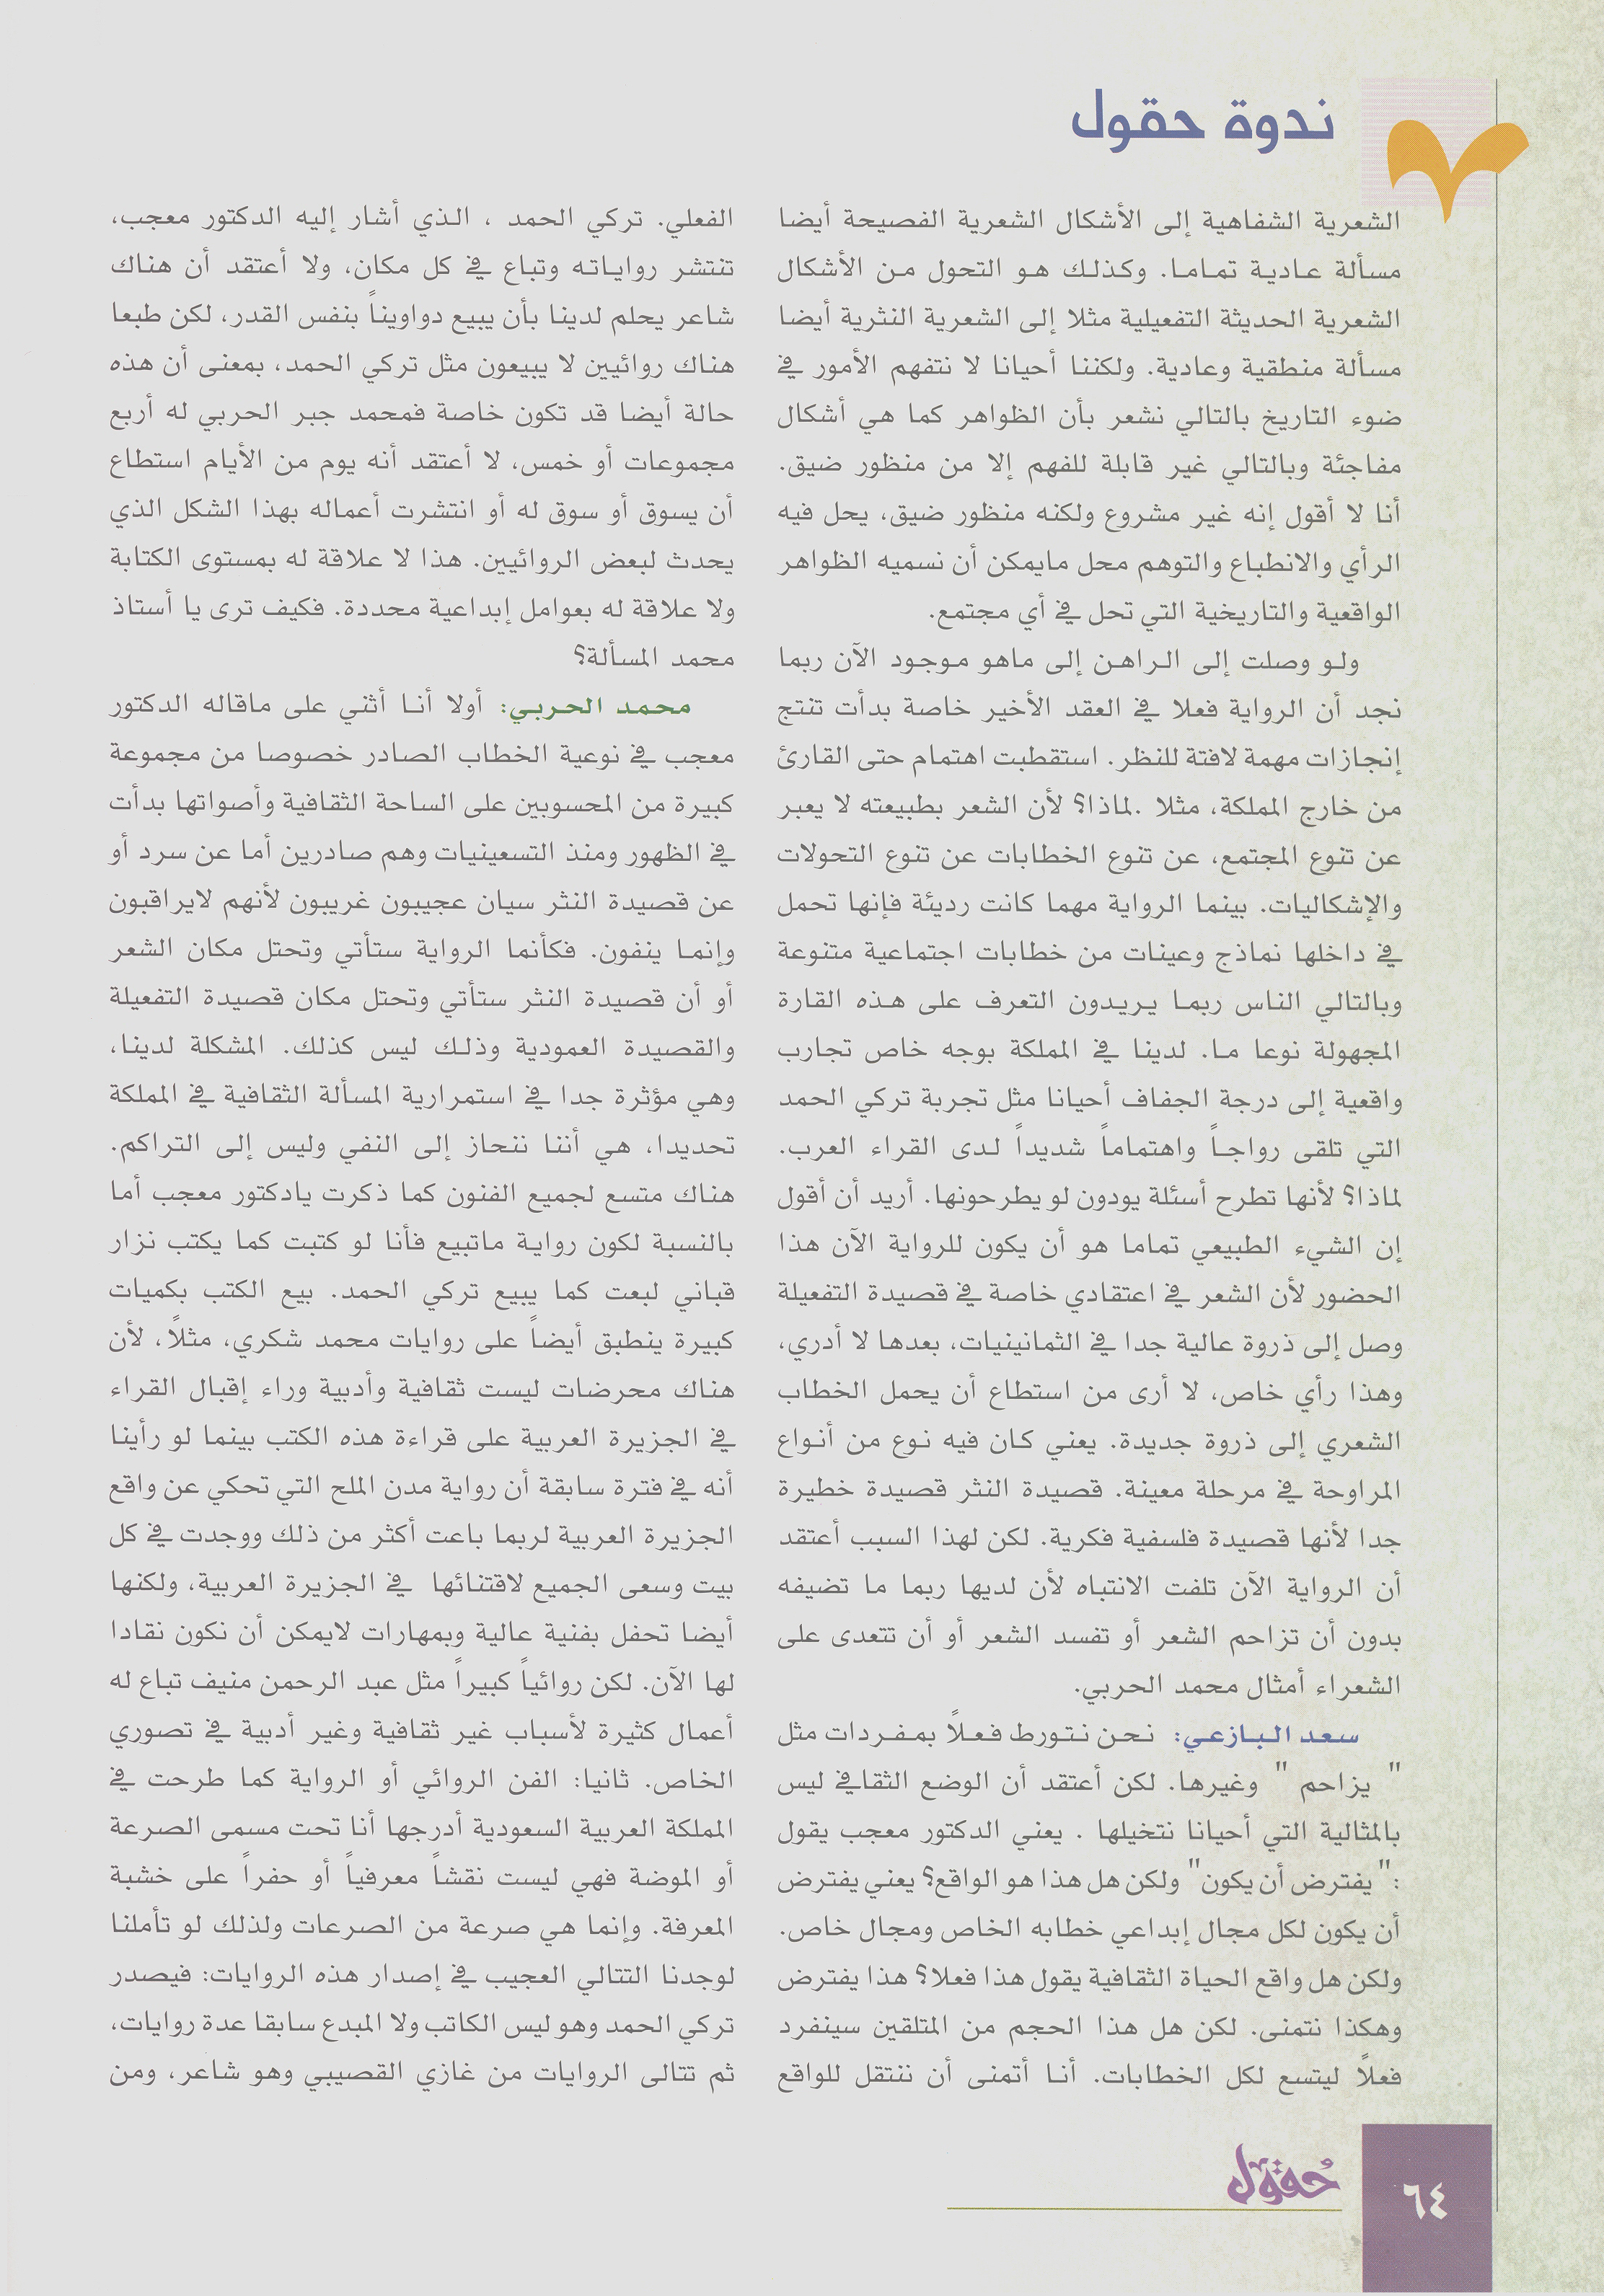 ندوة حقول
الشعرية الشفاهية إلى الأشكال الشعرية الفصيحة أيضا
مسألة عادية تماما. وكذلك هو التحول من الأشكال
الشعرية الحديثة التفعيلية مثلا إلى الشعرية النثرية أيضا
مسألة منطقية وعادية. ولكننا أحيانا لا نتفهم الأمور في
ضوء التاريخ بالتالي نشعر بأن الظواهر كما هي أشكال
مفاجئة وبالتالي غير قابلة للفهم إلا من منظور ضيق.
أنا لا أقول إنه غير مشروع ولكنه منظور ضيق، يحل فيه
الرأي والانطباع والتوهم محل مايمكن أن نسميه الظواهر
الواقعية والتاريخية التي تحل في أي مجتمع.
ولو وصلت إلى الراهن إلى ماهو موجود الآن ربما
نجد أن الرواية فعلا في العقد الأخير خاصة بدأت تنتج
إنجازات مهمة لافتة للنظر. استقطبت اهتمام حتى القارئ
من خارج المملكة، مثلا .لماذا؟ لأن الشعر بطبيعته لا يعبر
عن تنوع المجتمع، عن تنوع الخطابات عن تنوع التحولات
والإشكاليات. بينما الرواية مهما كانت رديئة فإنها تحمل
في داخلها نماذج وعينات من خطابات اجتماعية متنوعة
وبالتالي الناس ربما يريدون التعرف على هذه القارة
المجهولة نوعا ما. لدينا في المملكة بوجه خاص تجارب
واقعية إلى درجة الجفاف أحيانا مثل تجربة تركي الحمد
التي تلقى رواجاً واهتماماً شديداً لدى القراء العرب.
لماذا؟ لأنها تطرح أسئلة يودون لو يطرحونها. أريد أن أقول
إن الشيء الطبيعي تماما هو أن يكون للرواية الآن هذا
الحضور لأن الشعر في اعتقادي خاصة في قصيدة التفعيلة
وصل إلى ذروة عالية جدا في الثمانينيات، بعدها لا أدري،
وهذا رأي خاص، لا أرى من استطاع أن يحمل الخطاب
الشعري إلى ذروة جديدة. يعني كان فيه نوع من أنواع
المراوحة في مرحلة معينة. قصيدة النثر قصيدة خطيرة
جدا لأنها قصيدة فلسفية فكرية. لكن لهذا السبب أعتقد
أن الرواية الآن تلفت الانتباه لأن لديها ربما ما تضيفه
بدون أن تزاحم الشعر أو تفسد الشعر أو أن تتعدى على
الشعراء أمثال محمد الحربي.
سعد البازعي: نحن نتورط فعلاً بمفردات مثل
" يزاحم " وغيرها. لكن أعتقد أن الوضع الثقافي ليس
بالمثالية التي أحيانا نتخيلها . يعني الدكتور معجب يقول
:"يفترض أن يكون" ولكن هل هذا هو الواقع؟ يعني يفترض
أن يكون لكل مجال إبداعي خطابه الخاص ومجال خاص.
ولكن هل واقع الحياة الثقافية يقول هذا فعلا؟ هذا يفترض
وهكذا نتمنى. لكن هل هذا الحجم من المتلقين سينفرد
فعلاً ليتسع لكل الخطابات. أنا أتمنى أن ننتقل للواقع
الفعلي. تركي الحمد ، الذي أشار إليه الدكتور معجب،
تنتشر رواياته وتباع في كل مكان، ولا أعتقد أن هناك
شاعر يحلم لدينا بأن يبيع دواويناً بنفس القدر، لكن طبعا
هناك روائيين لا يبيعون مثل تركي الحمد، بمعنى أن هذه
حالة أيضا قد تكون خاصة فمحمد جبر الحربي له أربع
مجموعات أو خمس، لا أعتقد أنه يوم من الأيام استطاع
أن يسوق أو سوق له أو انتشرت أعماله بهذا الشكل الذي
يحدث لبعض الروائيين. هذا لا علاقة له بمستوى الكتابة
ولا علاقة له بعوامل إبداعية محددة. فكيف ترى يا أستاذ
محمد المسألة؟
محمد الحربي: أولا أنا أثني على ماقاله الدكتور
معجب في نوعية الخطاب الصادر خصوصا من مجموعة
كبيرة من المحسوبين على الساحة الثقافية وأصواتها بدأت
في الظهور ومنذ التسعينيات وهم صادرين أما عن سرد أو
عن قصيدة النثر سيان عجيبون غريبون لأنهم لايراقبون
وإنما ينفون. فكأنما الرواية ستأتي وتحتل مكان الشعر
أو أن قصيدة النثر ستأتي وتحتل مكان قصيدة التفعيلة
والقصيدة العمودية وذلك ليس كذلك. المشكلة لدينا،
وهي مؤثرة جدا في استمرارية المسألة الثقافية في المملكة
تحديدا، هي أننا ننحاز إلى النفي وليس إلى التراكم.
هناك متسع لجميع الفنون كما ذكرت يادكتور معجب أما
بالنسبة لكون رواية ماتبيع فأنا لو كتبت كما يكتب نزار
قباني لبعت كما يبيع تركي الحمد. بيع الكتب بكميات
كبيرة ينطبق أيضاً على روايات محمد شكري، مثلاً، لأن
هناك محرضات ليست ثقافية وأدبية وراء إقبال القراء
في الجزيرة العربية على قراءة هذه الكتب بينما لو رأينا
أنه في فترة سابقة أن رواية مدن الملح التي تحكي عن واقع
الجزيرة العربية لربما باعت أكثر من ذلك ووجدت في كل
بيت وسعى الجميع لاقتنائها في الجزيرة العربية، ولكنها
أيضا تحفل بفنية عالية وبمهارات لايمكن أن نكون نقادا
لها الآن. لكن روائياً كبيراً مثل عبد الرحمن منيف تباع له
أعمال كثيرة لأسباب غير ثقافية وغير أدبية في تصوري
الخاص. ثانيا: الفن الروائي أو الرواية كما طرحت في
المملكة العربية السعودية أدرجها أنا تحت مسمى الصرعة
أو الموضة فهي ليست نقشاً معرفياً أو حفراً على خشبة
المعرفة. وإنما هي صرعة من الصرعات ولذلك لو تأملنا
لوجدنا التتالي العجيب في إصدار هذه الروايات: فيصدر
تركي الحمد وهو ليس الكاتب ولا المبدع سابقا عدة روايات،
ثم تتالى الروايات من غازي القصيبي وهو شاعر، ومن
حُقول
٦٤